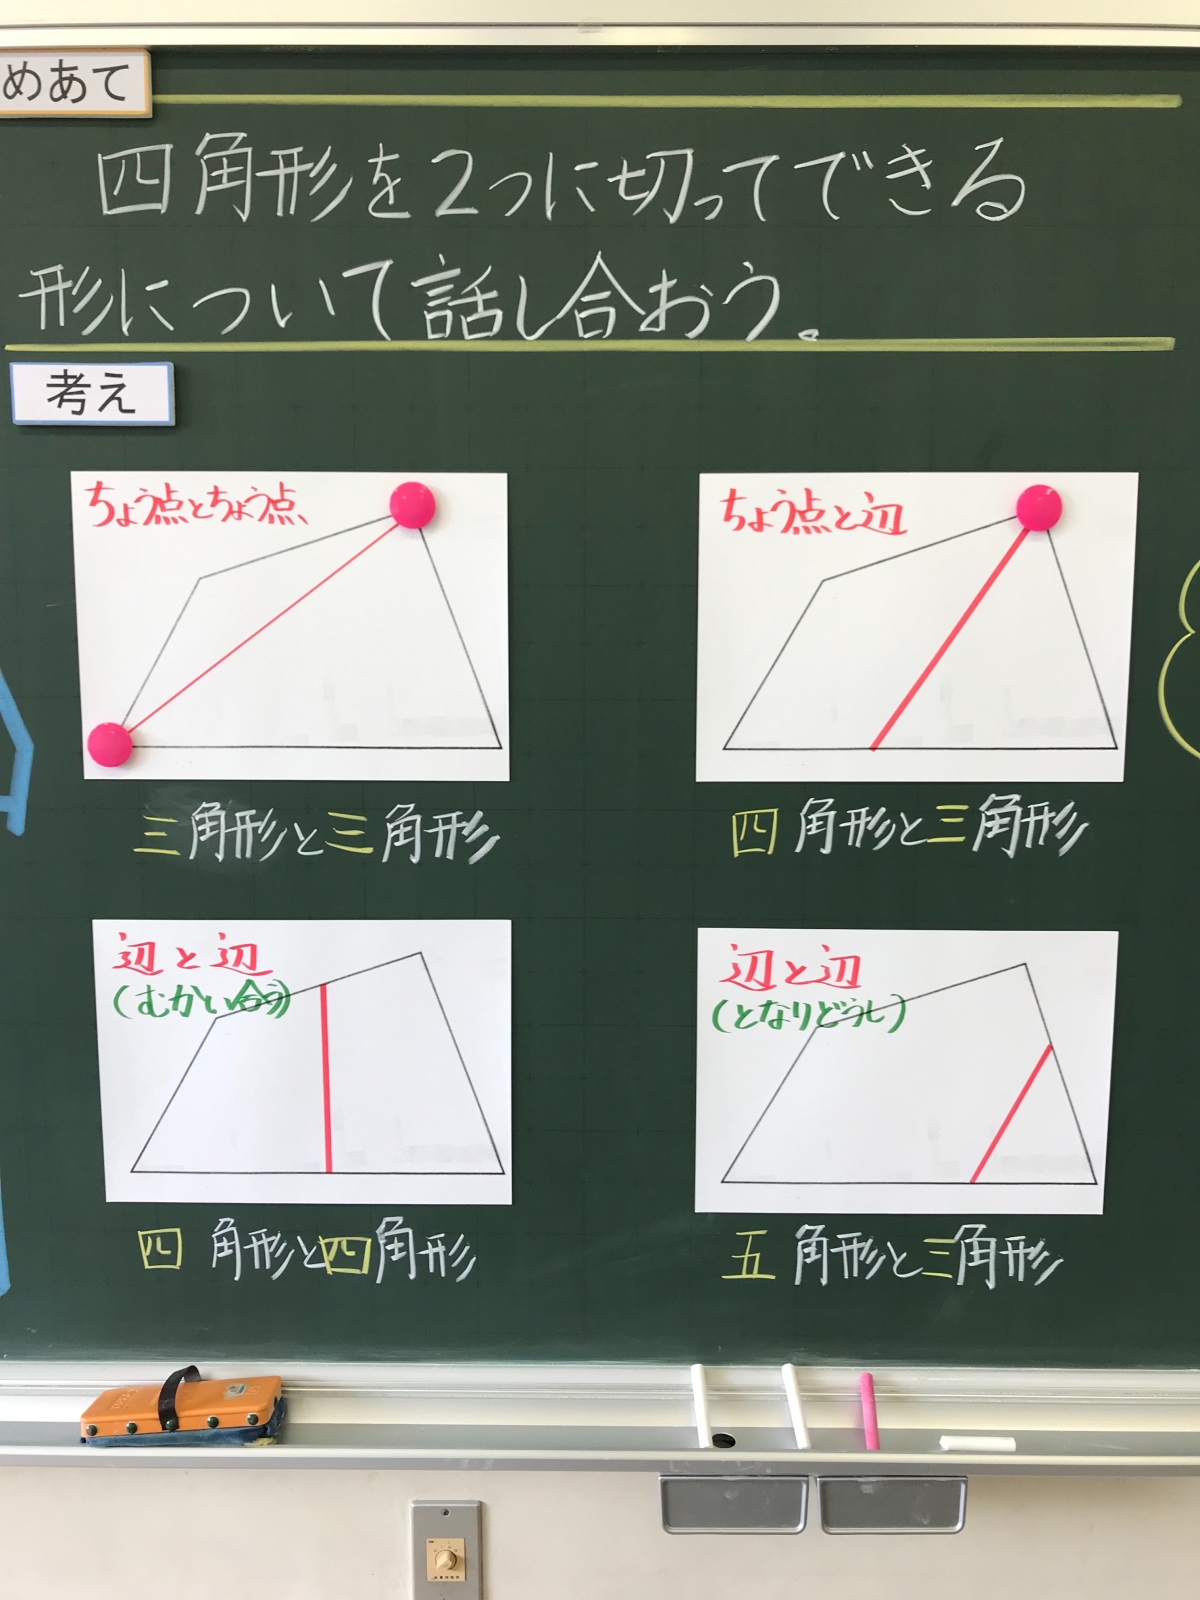 めあて
四角形を2つに切ってできる
形について話し合おう。
考え
ちょう点とちょう点
三角形と三角形
ちょう点と辺
四角形と三角形
辺と辺
(むかい合う)
四角形と四角形
辺と辺
(となりどうし)
五角形と三角形